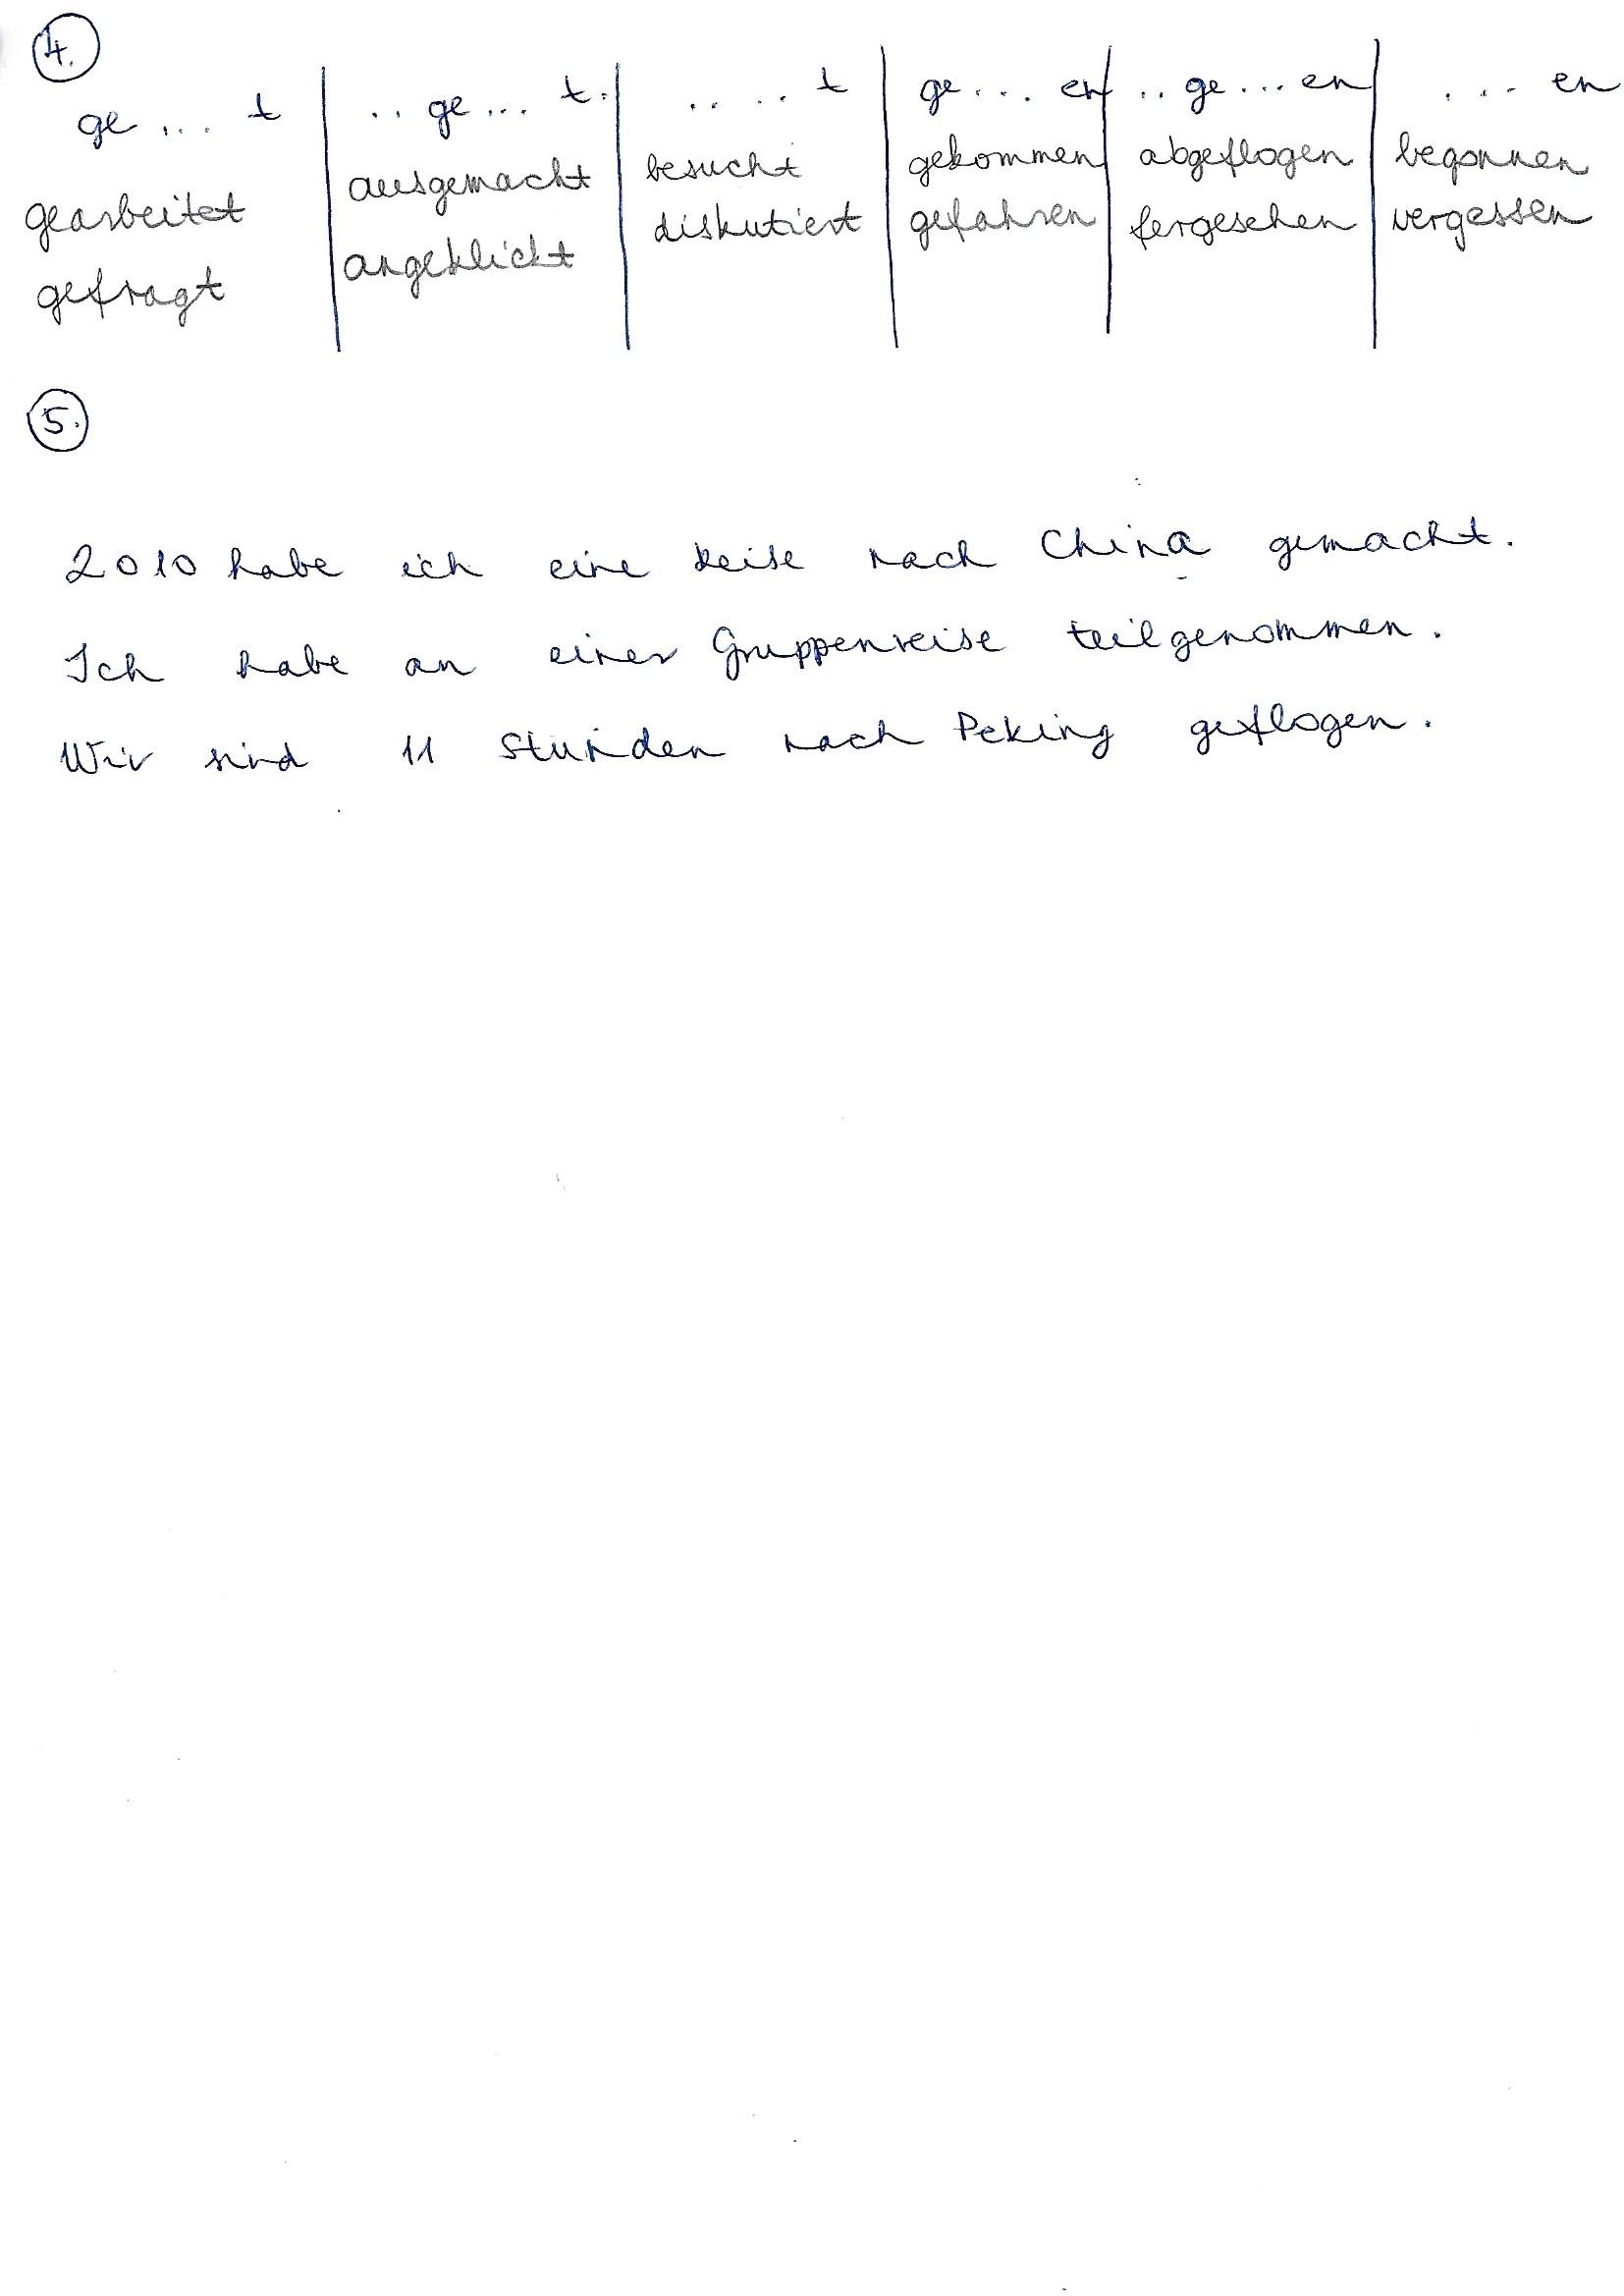 4.
ge ... t | .. ge ... t. | .. .. t | ge ... en | .. ge ... en | ... en
gearbeitet | ausgemacht | besucht | gekommen | abgeflogen | begonnen
gefragt | angeklickt | diskutiert | gefahren | fergesehen | vergessen
5.
2010 habe ich eine Reise nach China gemacht.
Ich habe an einer Gruppenreise teilgenommen.
Wir sind 11 Stunden nach Peking geflogen.